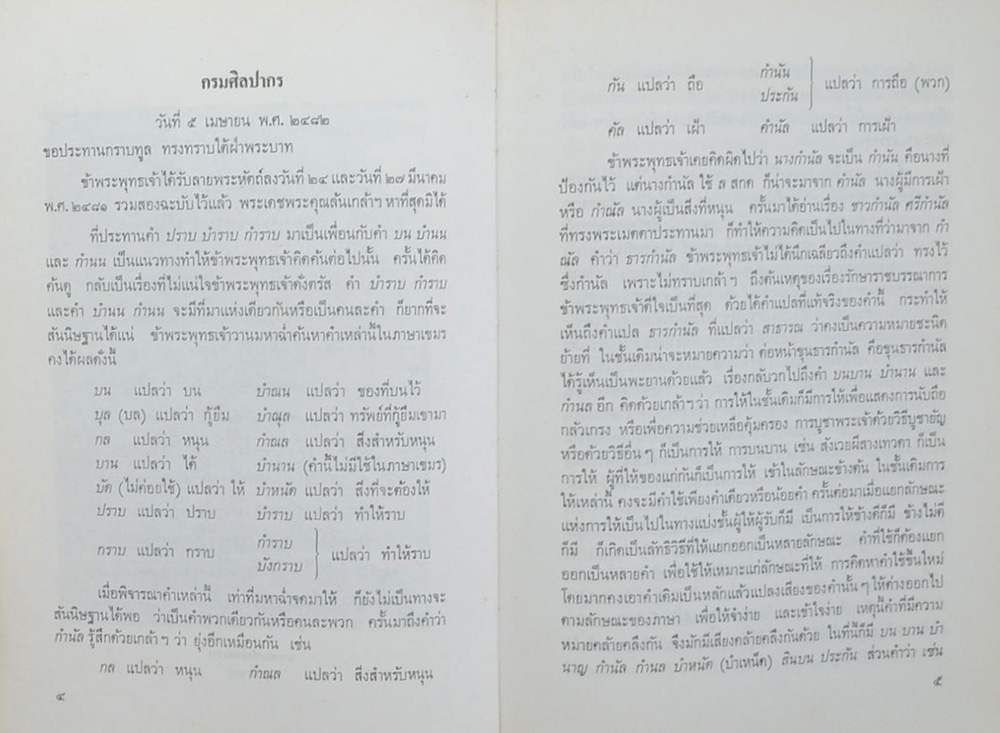 กรมศิลปากร
วันที่ ๕ เมษายน พ.ศ. ๒๔๘๒
ขอประทานกราบทูล ทรงทราบใต้ฝ่าพระบาท
ข้าพระพุทธเจ้าได้รับลายพระหัตถ์ลงวันที่ ๒๔ และวันที่ ๒๗ มีนาคม
พ.ศ. ๒๔๘๑ รวมสองฉะบับไว้แล้ว พระเดชพระคุณล้นเกล้าฯ หาที่สุดมิได้
ที่ประทานคำ ปราบ บำราบ กำราบ มาเป็นเพื่อนกับคำ บน บำนน
และ กำนน เป็นแนวทางทำให้ข้าพระพุทธเจ้าคิดค้นต่อไปนั้น ครั้นได้คิด
ค้นดู กลับเป็นเรื่องที่ไม่แน่ใจข้าพระพุทธเจ้าดั่งตรัส คำ บำราบ กำราบ
และคำ บำนน กำนน จะมีที่มาแห่งเดียวกันหรือเป็นคนละคำ ก็ยากที่จะ
สันนิษฐานได้แน่ ข้าพระพุทธเจ้าวานมหาฉ่ำค้นหาคำเหล่านี้ในภาษาเขมร
คงได้ผลดั่งนี้
บน แปลว่า บน บำณน แปลว่า ของที่บนไว้
บุล (บล) แปลว่า กู้ยืม บำณุล แปลว่า ทรัพย์ที่กู้ยืมเขามา
กล แปลว่า หนุน กำณล แปลว่า สิ่งสำหรับหนุน
บาน แปลว่า ได้ บำนาน (คำนี้ไม่มีใช้ในภาษาเขมร)
บัด (ไม่ค่อยใช้) แปลว่า ให้ บำหนัด แปลว่า สิ่งที่จะต้องให้
ปราบ แปลว่า ปราบ บำราบ แปลว่า ทำให้ราบ
กราบ แปลว่า กราบ กำราบ บังกราบ แปลว่า ทำให้ราบ
เมื่อพิจารณาคำเหล่านี้ เท่าที่มหาฉ่ำจดมาให้ ก็ยังไม่เป็นทางจะ
สันนิษฐานได้พอ ว่าเป็นคำพวกเดียวกันหรือคนละพวก ครั้นมาถึงคำว่า
กำนัล รู้สึกด้วยเกล้าฯ ว่า ยุ่งอีกเหมือนกัน เช่น
กล แปลว่า หนุน กำณล แปลว่า สิ่งสำหรับหนุน
๔
กัน แปลว่า ถือ กำนัน ประกัน แปลว่า การถือ (พวก)
คัล แปลว่า เฝ้า คำนัล แปลว่า การเฝ้า
ข้าพระพุทธเจ้าเคยคิดผิดไปว่า นางกำนัล จะเป็น กำนัน คือนางที่
ป้องกันไว้ แต่นางกำนัล ใช้ ล สกด ก็น่าจะมาจาก คำนัล นางผู้มีการเฝ้า
หรือ กำณัล นางผู้เป็นสิ่งที่หนุน ครั้นมาได้อ่านเรื่อง ชาวกำนัล ศรีกำนัล
ที่ทรงพระเมตตาประทานมา ก็ทำให้ความคิดเป็นไปในทางที่ว่ามาจาก กำ
ณัล คำว่า ธารกำนัล ข้าพระพุทธเจ้าไม่ได้นึกเฉลียวถึงคำแปลว่า ทรงไว้
ซึ่งกำนัล เพราะไม่ทราบเกล้าฯ ถึงต้นเหตุของเรื่องรักษาราชบรรณาการ
ข้าพระพุทธเจ้าดีใจเป็นที่สุด ด้วยได้คำแปลที่แท้จริงของคำนี้ กระทำให้
เห็นถึงคำแปล ธารกำนัล ที่แปลว่า สาธารณ ว่าคงเป็นความหมายชะนิด
ย้ายที่ ในชั้นเดิมน่าจะหมายความว่า ต่อหน้าขุนธารกำนัล คือขุนธารกำนัล
ได้รู้เห็นเป็นพะยานด้วยแล้ว เรื่องกลับวกไปถึงคำ บนบาน บำนาน และ
กำนล อีก คิดด้วยเกล้าฯ ว่า การให้ในชั้นเดิมก็มีการให้เพื่อแสดงการนับถือ
กลัวเกรง หรือเพื่อความช่วยเหลือคุ้มครอง การบูชาพระเจ้าด้วยวิธีบูชายัญ
หรือด้วยวิธีอื่น ๆ ก็เป็นการให้ การบนบาน เช่น สังเวยผีสางเทวดา ก็เป็น
การให้ ผู้ที่ให้ของแก่กันก็เป็นการให้ เข้าในลักษณะข้างต้น ในชั้นเดิมการ
ให้เหล่านี้ คงจะมีคำใช้เพียงคำเดียวหรือน้อยคำ ครั้นต่อมาเมื่อแยกลักษณะ
แห่งการให้เป็นไปในทางแบ่งชั้นผู้ให้ผู้รับก็มี เป็นการให้ข้างดีก็มี ข้างไม่ดี
ก็มี ก็เกิดเป็นลัทธิวิธีที่ให้แยกออกเป็นหลายลักษณะ คำที่ใช้ก็ต้องแยก
ออกเป็นหลายคำ เพื่อใช้ให้เหมาะแก่ลักษณะที่ให้ การคิดหาคำใช้ขึ้นใหม่
โดยมากคงเอาคำเดิมเป็นหลักแล้วแปลงเสียงของคำนั้น ๆ ให้ต่างออกไป
ตามลักษณะของภาษา เพื่อให้จำง่าย และเข้าใจง่าย เหตุนี้คำที่มีความ
หมายคล้ายคลึงกัน จึงมักมีเสียงคล้ายคลึงกันด้วย ในที่นี้ก็มี บน บาน บำ
นาญ กำนัล กำนล บำหนัด (บำเหน็ด) สินบน ประกัน ส่วนคำว่า เซ่น
๕